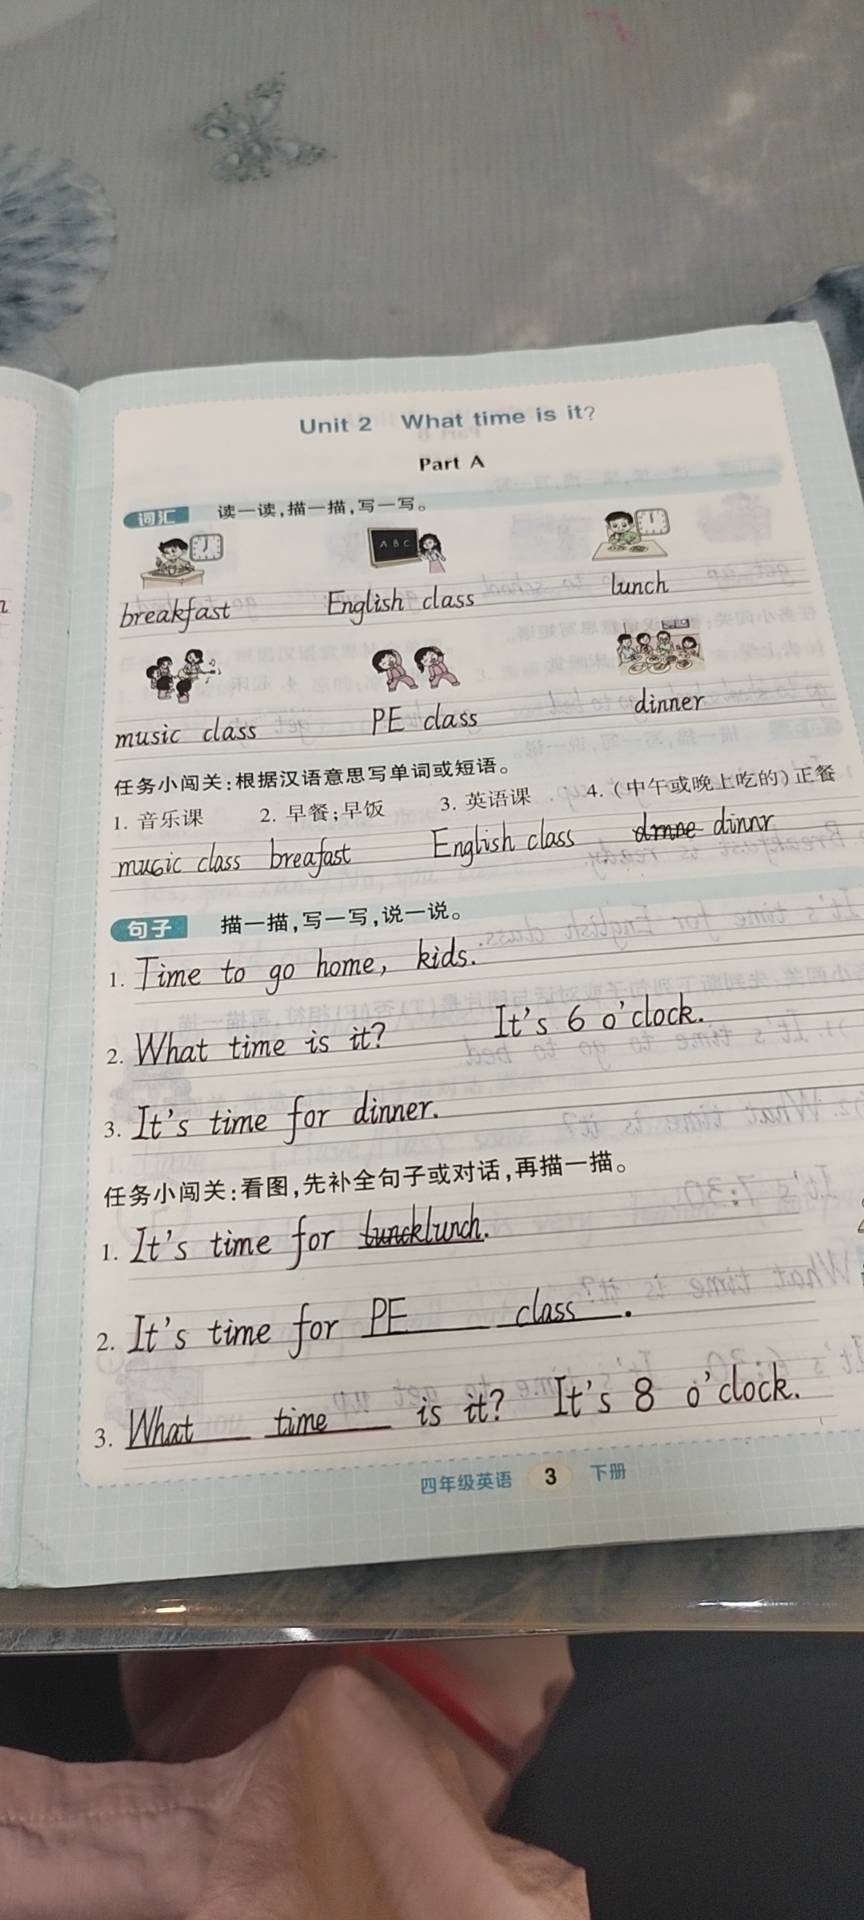 Unit 2 What time is it?
Part A
词汇 读一读,描一描,写一写。
A B C
breakfast English class lunch
music class PE class dinner
任务小闯关:根据汉语意思写单词或短语。
1. 音乐课 2. 早餐;早饭 3. 英语课 4. (中午或晚上吃的)正餐
music class breafast English class dinnr
句子 描一描,写一写,说一说。
1. Time to go home, kids.
2. What time is it? It's 6 o'clock.
3. It's time for dinner.
任务小闯关:看图,先补全句子或对话,再描一描。
1. It's time for lunch.
2. It's time for PE class.
3. What time is it? It's 8 o'clock.
四年级英语 3 下册